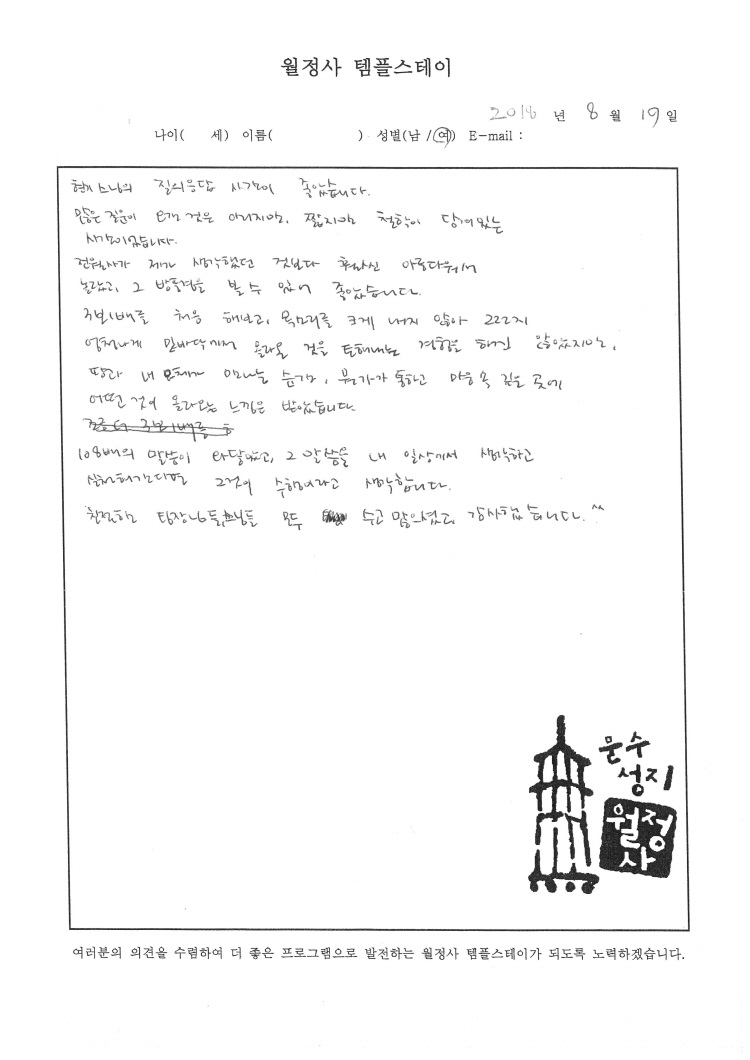 월정사 템플스테이
2018 년 8 월 19 일
나이( 세) 이름( ) 성별(남 /여) E-mail :
스님의 질의응답 시간이 좋았습니다.
많은 질문이 것은 아니지만, 짧지만 철학이 담겨있는
시간이었습니다.
전월사가 제가 생각했던 것보다 훨씬 아름다워서
놀랐고, 그 방문길을 볼 수 있어 좋았습니다.
3보1배를 처음 해보고, 목소리를 크게 내지 않아
엄청나게 밑바닥에서 올라온 것을 토해내는 경험을 하진 않았지만,
땅과 내 만나는 순간, 뭔가가 통하고 마음 속 깊은 곳에
어떤 것이 올라오는 느낌은 받았습니다.
108배의 말씀이 와닿았고, 그 말씀을 내 일상에서 생각하고
실천해간다면 그것이 수행이라고 생각합니다.
친절하신 팀장님들, 스님들 모두 수고 많으셨고, 감사했습니다. ^^
문수
성지
월정
사
여러분의 의견을 수렴하여 더 좋은 프로그램으로 발전하는 월정사 템플스테이가 되도록 노력하겠습니다.